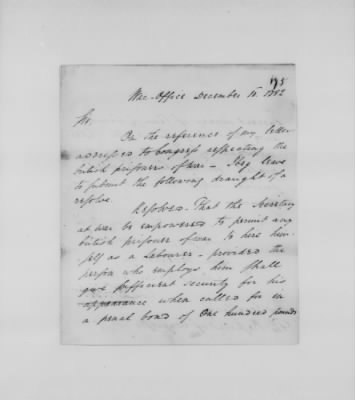 195
War-Office December 18. 1782
Sir.
On the reference of my letter
addressed to Congress respecting the
british prisoners of war – I beg leave
to submit the following draught of a
resolve.
Resolved – That the Secretary
at war be empowered to permit any
british prisoner of war to hire him
self as a labourer – provided the
person who employs him shall
give sufficient security for his
appearance when called for in
a penal bond of One hundred pounds